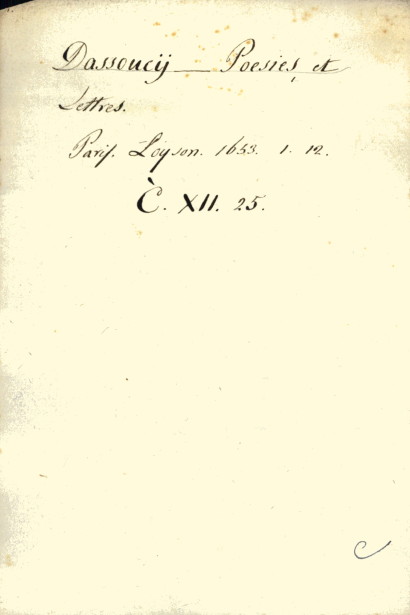 Dassoucÿ — Poesies et
Lettres.
Paris. Loyson. 1653. 1. 12.
C̀. XII. 25.
C